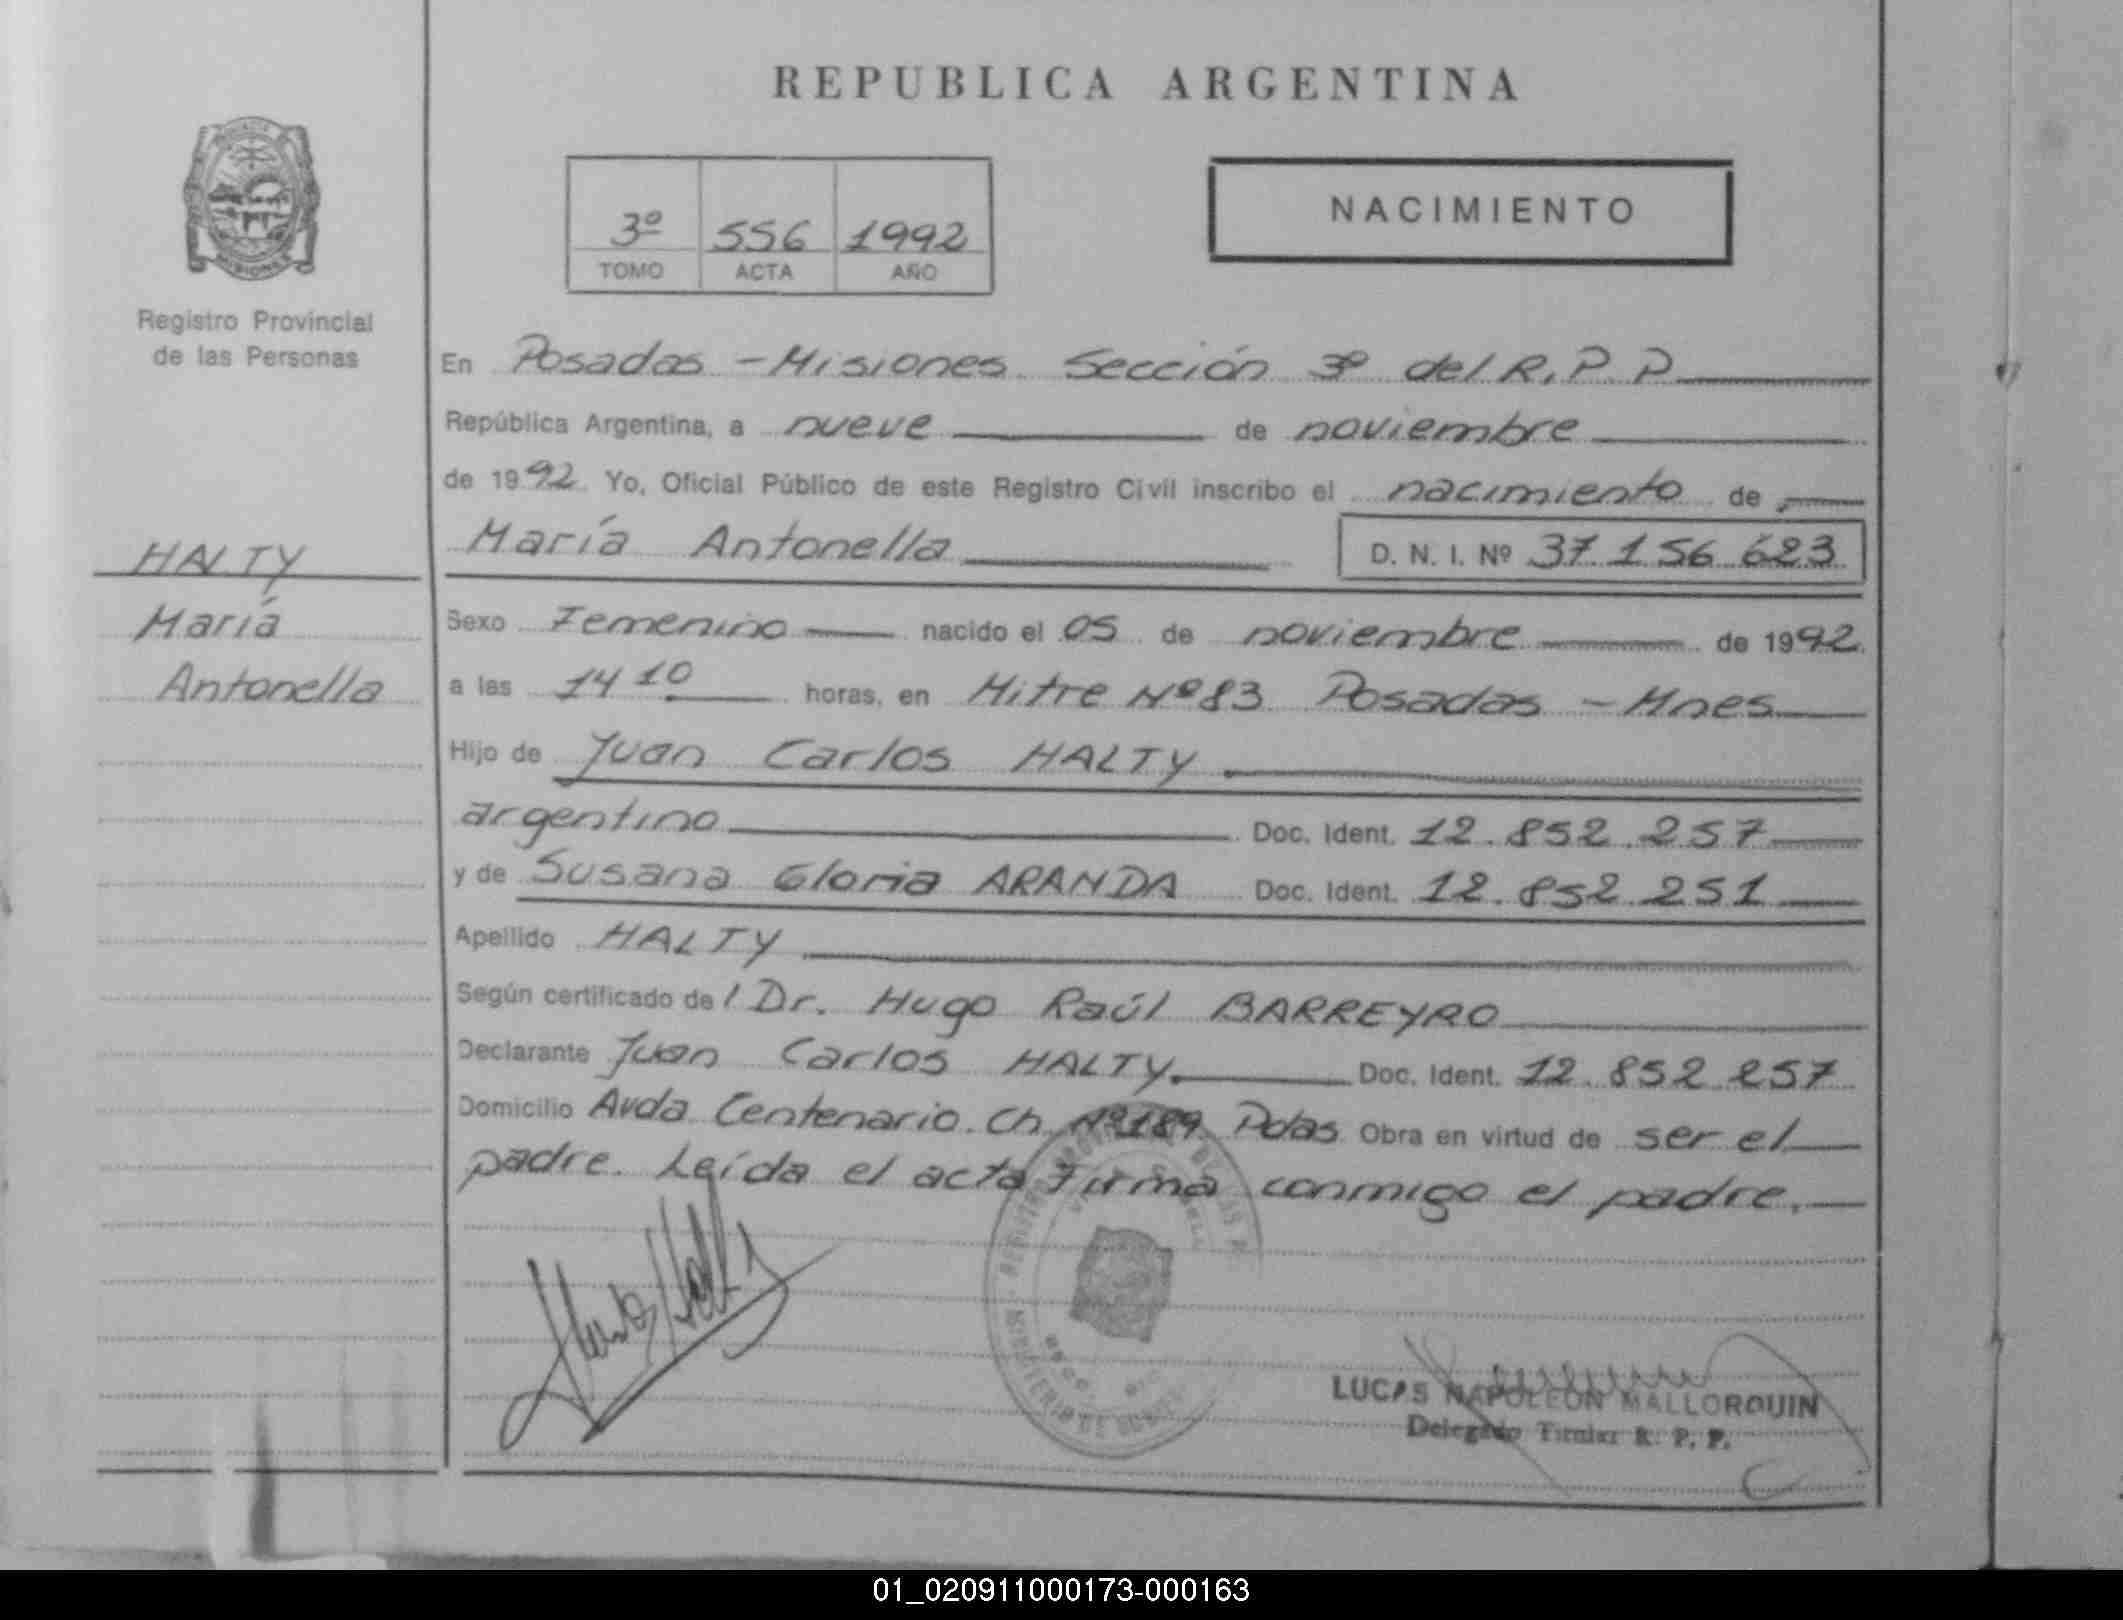 REPUBLICA ARGENTINA
NACIMIENTO
3º 556 1992
TOMO ACTA AÑO
MISIONES
Registro Provincial
de las Personas
HALTY
María
Antonella
En Posadas - Misiones Sección 3º del R.P.P
República Argentina, a nueve de noviembre
de 1992 Yo, Oficial Público de este Registro Civil inscribo el nacimiento de
María Antonella D. N. I. Nº 37.156.623
Sexo Femenino nacido el 05 de noviembre de 1992
a las 14 10 horas, en Mitre Nº 83 Posadas - Mnes
Hijo de Juan Carlos HALTY
argentino Doc. Ident. 12.852.257
y de Susana Gloria ARANDA Doc. Ident. 12.852.251
Apellido HALTY
Según certificado del Dr. Hugo Raúl BARREYRO
Declarante Juan Carlos HALTY Doc. Ident. 12.852.257
Domicilio Avda Centenario. Ch Nº 189 Pdas Obra en virtud de ser el
padre. Leída el acta firma conmigo el padre.
LUCAS NAPOLEON MALLORQUIN
Delegado Titular R. P. P.
01_020911000173-000163